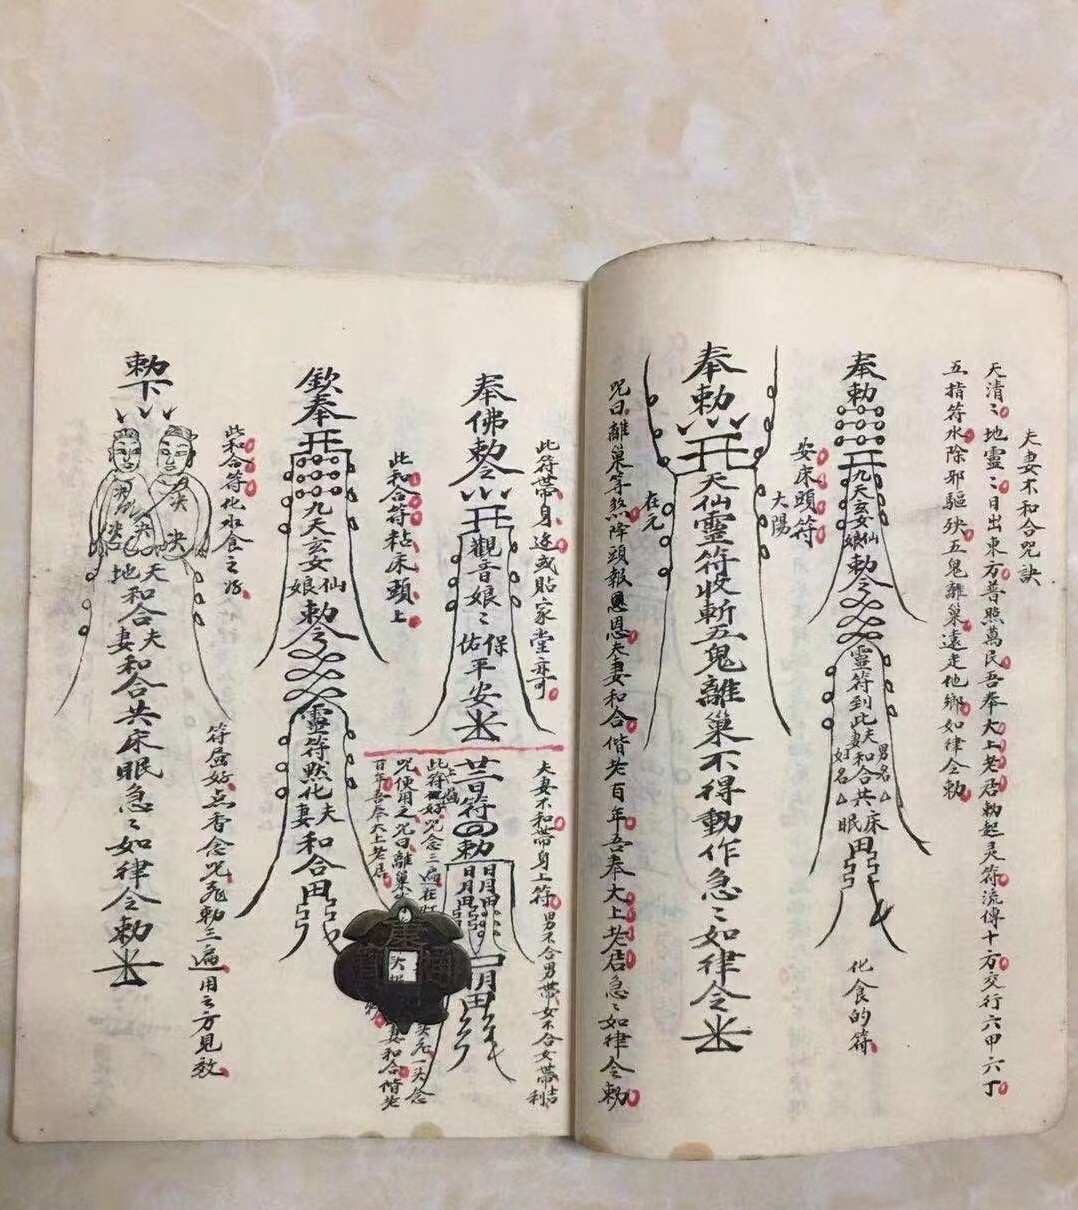 夫妻不和合咒訣
天清〻地靈〻日出東方普照萬民吾奉太上老君勅起灵符流傳十方交行六甲六丁
五指符水除邪驅殃五鬼離巢遠走他鄉如律令勅
奉勅
九天玄女仙娘勅令
靈符到此夫妻和合共床眠
男名
女名
化食的符
安床頭符
大陽
奉勅
天仙靈符收斬五鬼離巢不得動作急〻如律令
在元
咒曰離巢等煞降頭報恩恩夫妻和合偕老百年吾奉大上老君急〻如律令勅
此符帶身边或貼家堂亦可
奉佛勅令
觀音娘〻保佑平安
夫妻不和帶身上符
男不合男帶女不合女帶吉利
廿日符
勅
日月田
日月田
明田
此符
好咒念三遍在
咒使用之咒曰離巢
百年吾奉太上老君
念
妻和合偕老
此和合符粘床頭上
欽奉
九天玄女仙娘勅令
靈符黙化夫妻和合田
此和合符化水食之好
符居好点香念咒
勅三遍用之方見效
勅下
天地和合夫妻和合共床眠急〻如律令勅